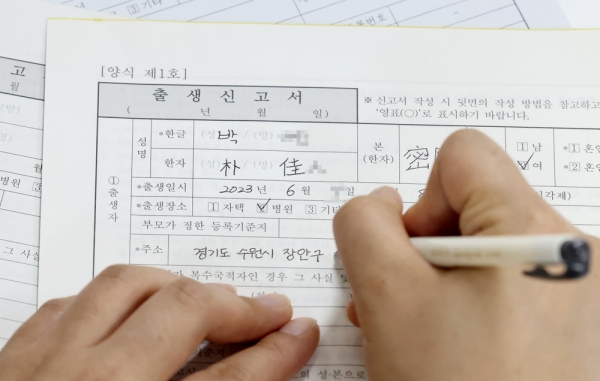 번호
3 기타
고
월
(명)
월
병원 3
[양식 제1호]
출 생 신 고 서
( 년 월 일)
※ 신고서 작성 시 뒷면의 작성 방법을 참고하고
‘영표(○)’로 표시하기 바랍니다.
성명 *한글 (성) 박 / (명) 본(한자) 密 1 남 *1 혼인
한자 (성) 朴 / (명) 佳 2 여 *2 혼인
① 출생자
*출생일시 2023년 6월 일 시각제)
*출생장소 1 자택 2 병원 3 기타
부모가 정한 등록기준지
*주소 경기도 수원시 장안구
그 사실
가 복수국적자인 경우 그 사실 및